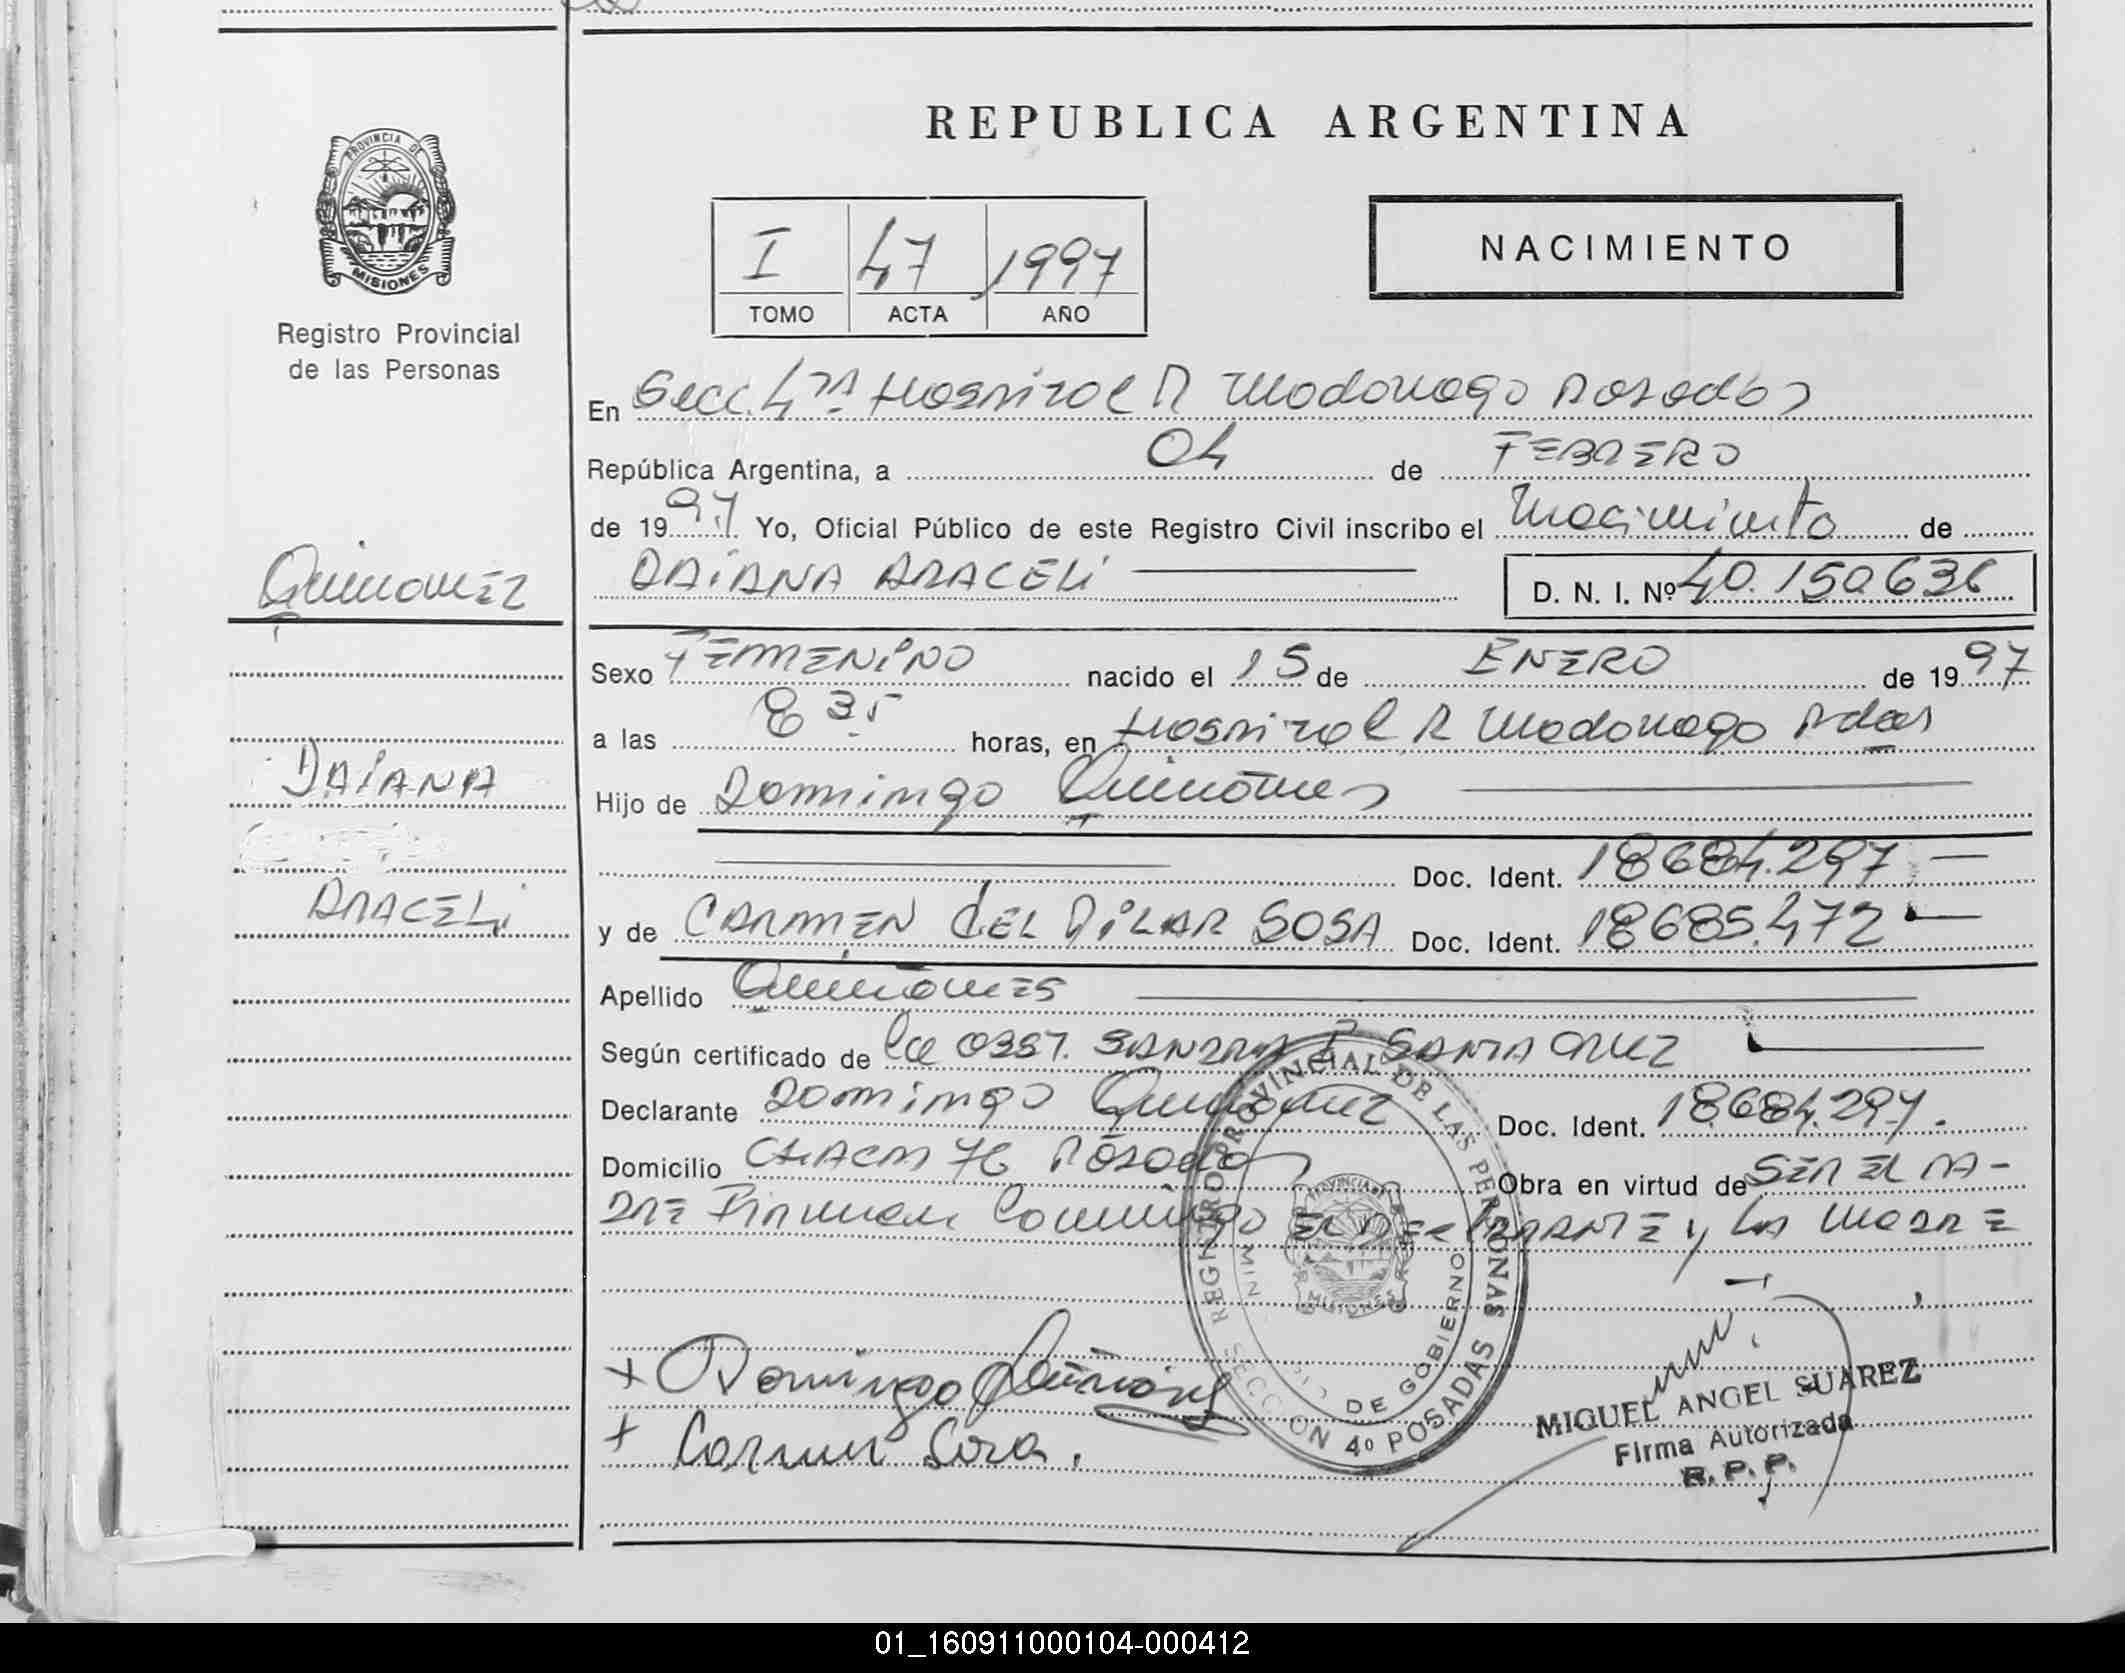 REPUBLICA ARGENTINA
PROVINCIA DE
MISIONES
Registro Provincial
de las Personas
I 47 1997
TOMO ACTA AÑO
NACIMIENTO
En Secc. 4ta Hospital R Madariaga Posadas
República Argentina, a 04 de FEBRERO
de 1997 Yo, Oficial Público de este Registro Civil inscribo el Nacimiento de
DAIANA ARACELI D. N. I. Nº 40.150.636
Quiñonez
DAIANA
ARACELI
Sexo FEMENINO nacido el 15 de ENERO de 1997
a las 8 35 horas, en Hospital R Madariaga Pdas
Hijo de Domingo Quiñones
Doc. Ident. 18684.297
y de CARMEN del PILAR SOSA Doc. Ident. 18685.472
Apellido Quiñones
Según certificado de la OBST. SANDRA SANTA CRUZ
Declarante Domingo Quiñonez Doc. Ident. 18.684.297.
Domicilio CHACRA 76 Posadas Obra en virtud de SER EL PA-
DRE Firman Conmigo EL DECLARANTE y LA MADRE
REGISTRO PROVINCIAL DE LAS PERSONAS
SECCION 4º POSADAS
DE GOBIERNO
PROVINCIA DE
MISIONES
+ Domingo Quiñonez
+ Carmen Sosa.
MIGUEL ANGEL SUAREZ
Firma Autorizada
R. P. P.
01_160911000104-000412